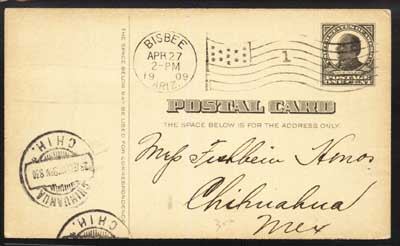 THE SPACE BELOW MAY BE USED FOR CORRESPONDENCE.
BISBEE
APR 27
2-PM
1909
ARIZ.
1
UNITED STATES OF AMERICA
POSTAGE
ONE CENT
POSTAL CARD
THE SPACE BELOW IS FOR THE ADDRESS ONLY.
Fishbein Hnos
Chihuahua
Mex
CHIH.
CHIHUAHUA
CHIH.